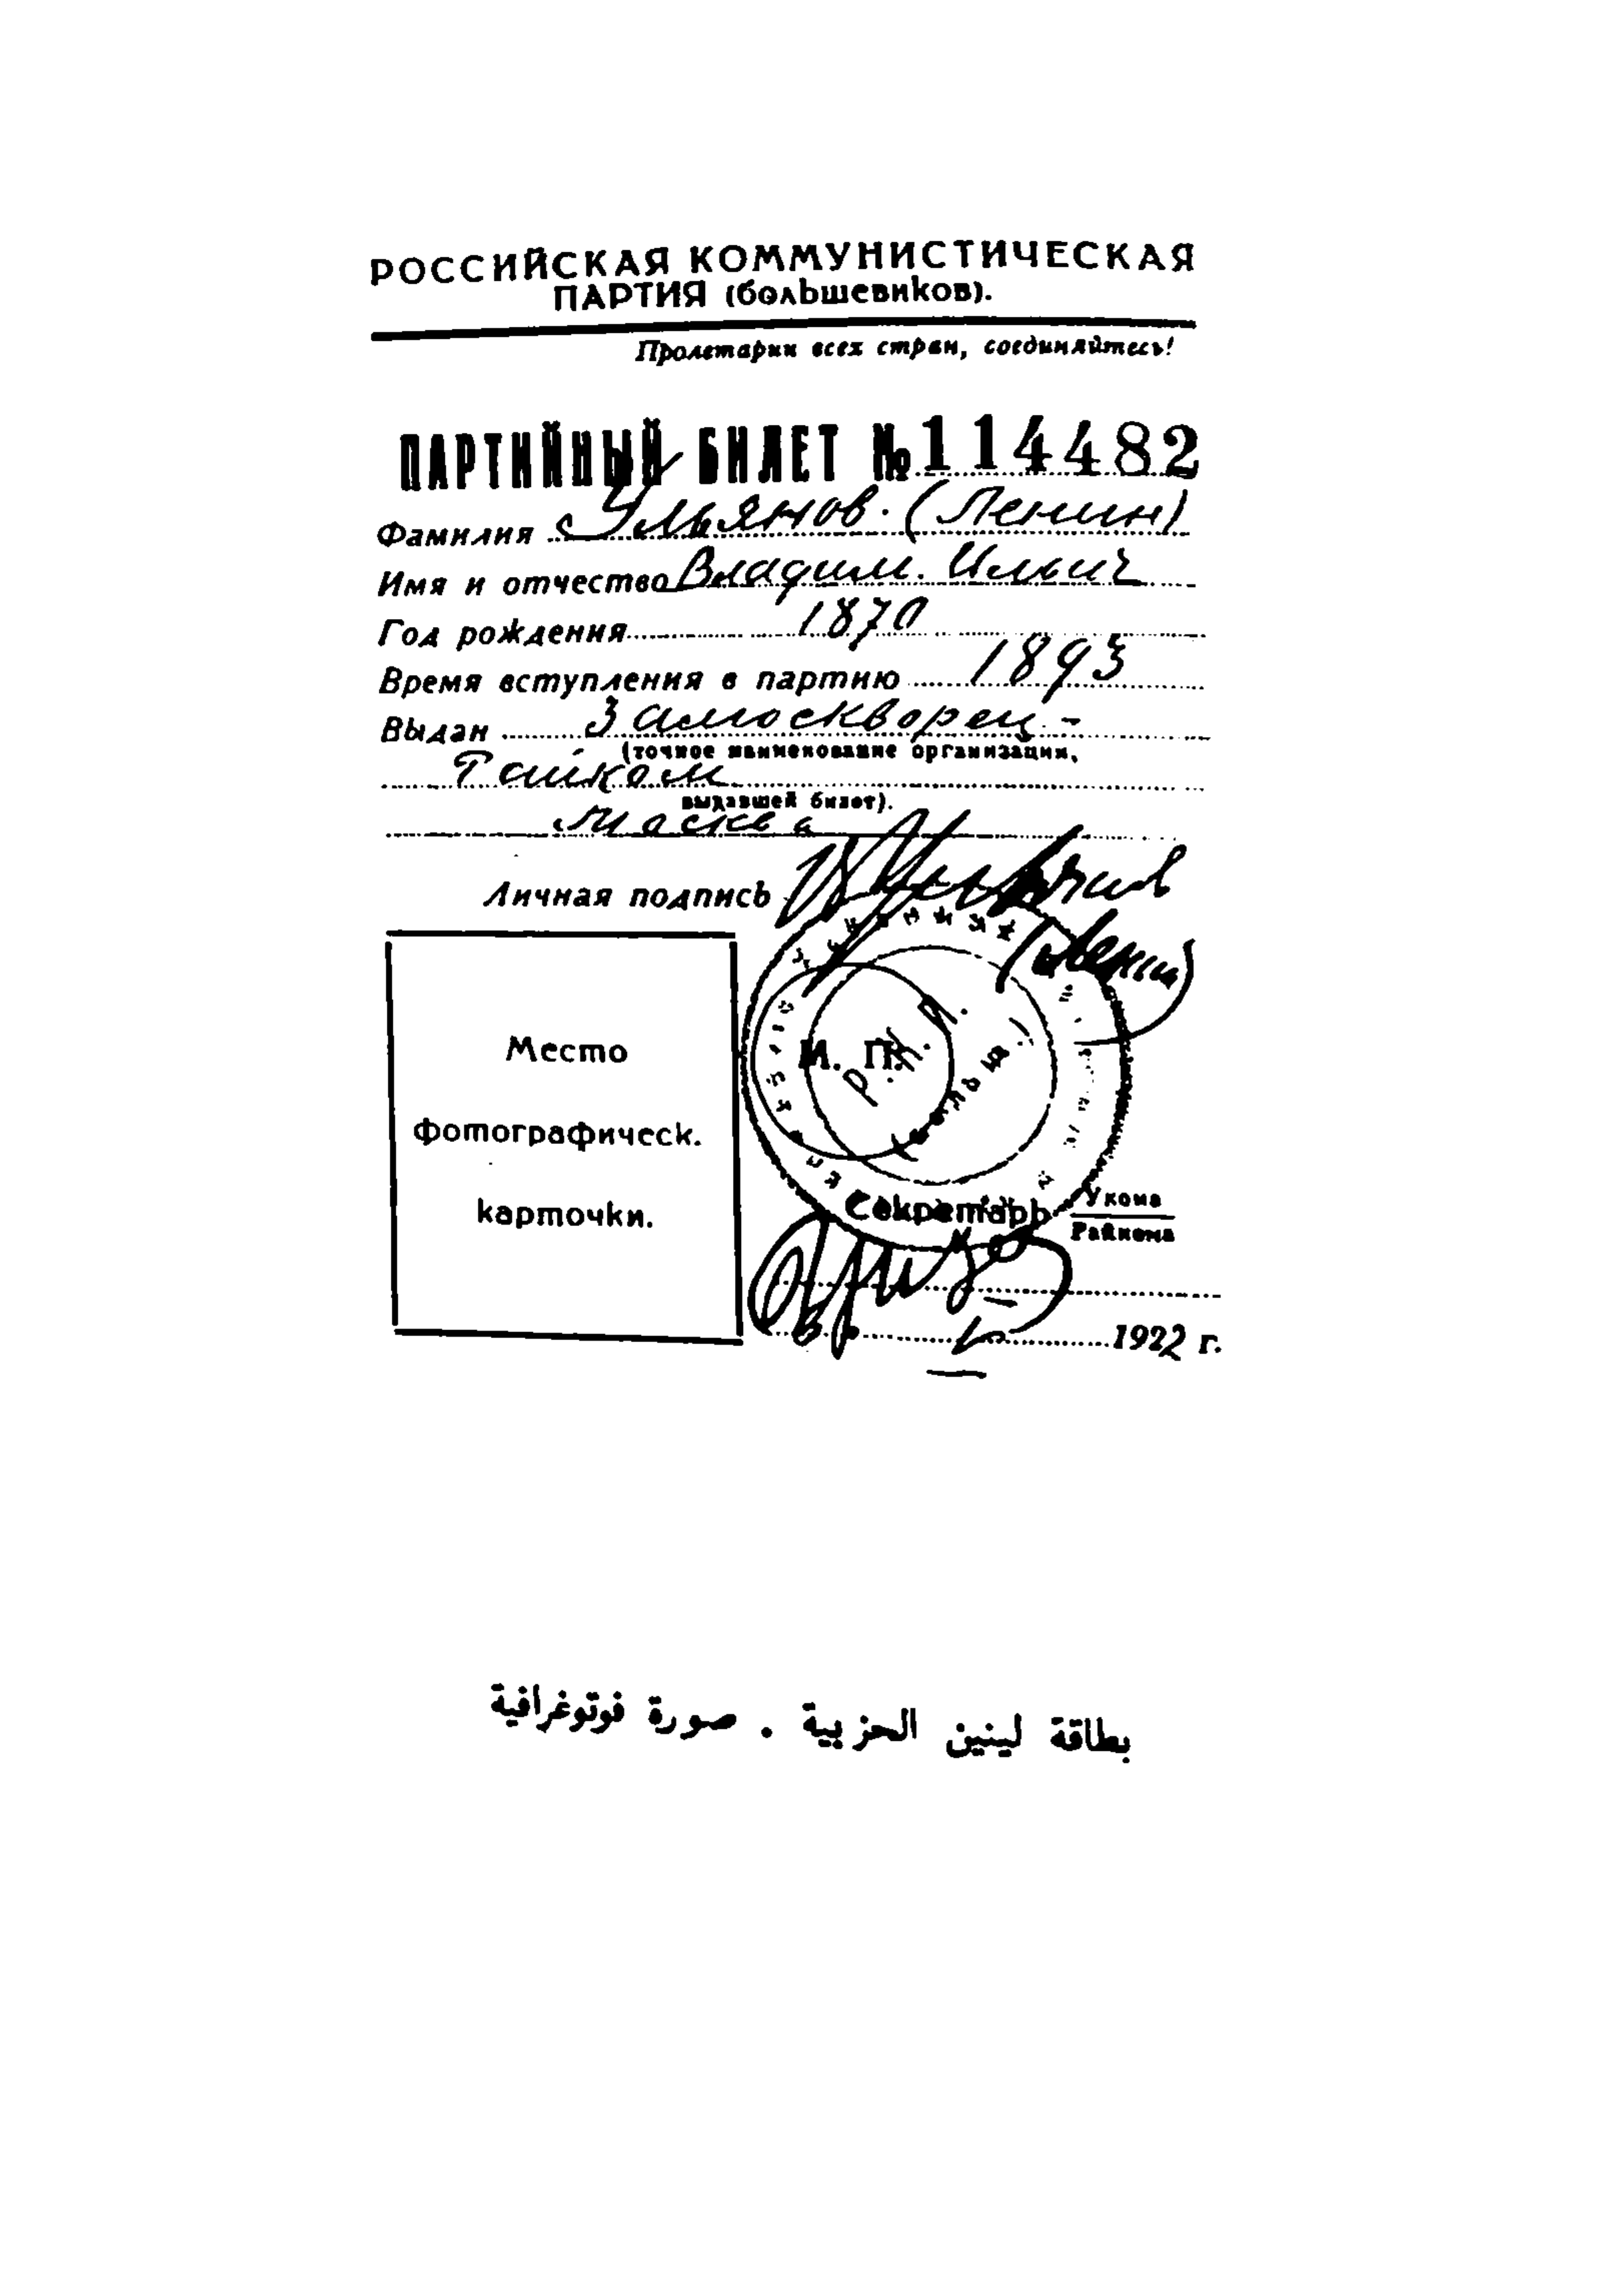 РОССИЙСКАЯ КОММУНИСТИЧЕСКАЯ
ПАРТИЯ (большевиков).
Пролетарии всех стран, соединяйтесь!
ПАРТИЙНЫЙ БИЛЕТ № 114482
Фамилия Ульянов. (Ленин)
Имя и отчество Владим. Ильич
Год рождения 1870
Время вступления в партию 1893
Выдан Замоскворец-
(точное наименование организации,
Райком
выдавшей билет).
Москва
Личная подпись
(Ленин)
Место
фотографическ.
карточки.
М. П.
Секретарь Укома
Райкома
1922 г.
بطاقة لينين الحزبية . صورة فوتوغرافية